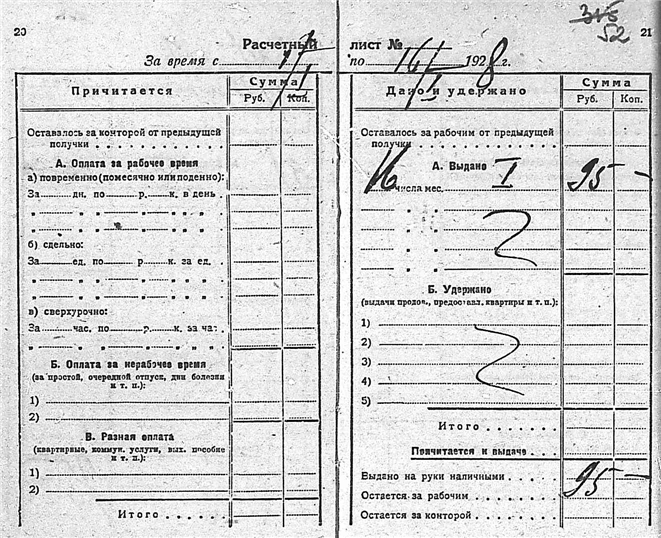 20
Расчетный
За время с
Причитается
Сумма
Руб. Коп.
Оставалось за конторой от предыдущей
получки
А. Оплата за рабочее время
а) повременно (помесячно или поденно):
За дн. по р. к. в день
" " " " " "
" " " " " "
б) сдельно:
За ед. по р. к. за ед.
" " " " " "
" " " " " "
в) сверхурочно:
За час. по р. к. за час
" " " " " "
Б. Оплата за нерабочее время
(за простой, очередной отпуск, дни болезни
и т. п.):
1)
2)
В. Разная оплата
(квартирные, коммун. услуги, вых. пособие
и т. п.):
1)
2)
Итого
315
52
21
лист №
по 16/I 1928 г.
Дано и удержано
Сумма
Руб. Коп.
Оставалось за рабочим от предыдущей
получки
А. Выдано
16 числа мес. I 95 —
" "
" "
" "
" "
Б. Удержано
(выдачи продов., предоставл. квартиры и т. п.):
1)
2)
3)
4)
5)
Итого
Причитается к выдаче
Выдано на руки наличными 95 —
Остается за рабочим
Остается за конторой